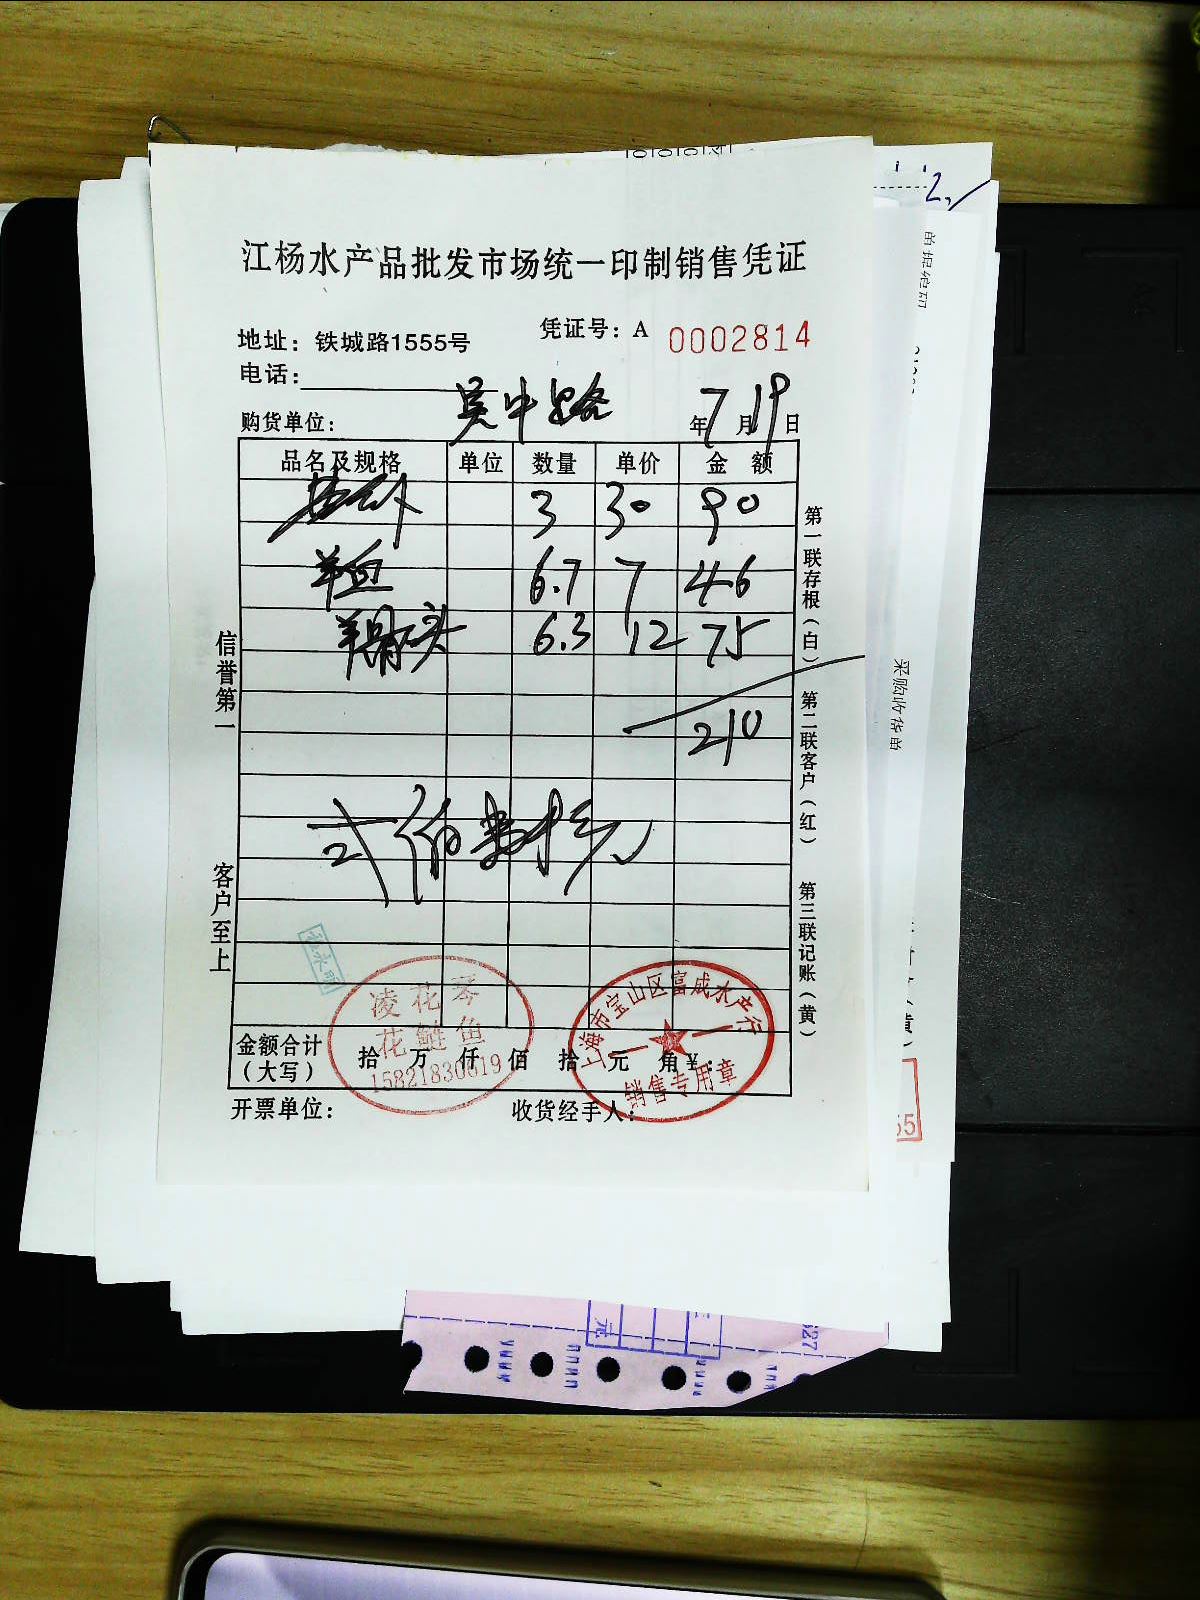 江杨水产品批发市场统一印制销售凭证
地址：铁城路1555号
凭证号：A 0002814
电话：
购货单位： 吴中路 年7月19日
品名及规格 单位 数量 单价 金额
3 30 90
羊血 6.7 7 46
羊骨头 6.3 12 75
210
式佰 拾元
信誉第一
客户至上
第一联存根（白）
第二联客户（红）
第三联记账（黄）
凌花琴
花鲢鱼
15821830619
上海市宝山区富成水产行
销售专用章
金额合计（大写） 拾 万 仟 佰 拾 元 角 ¥：
开票单位： 收货经手人：
采购收货单
2,
55
627
元